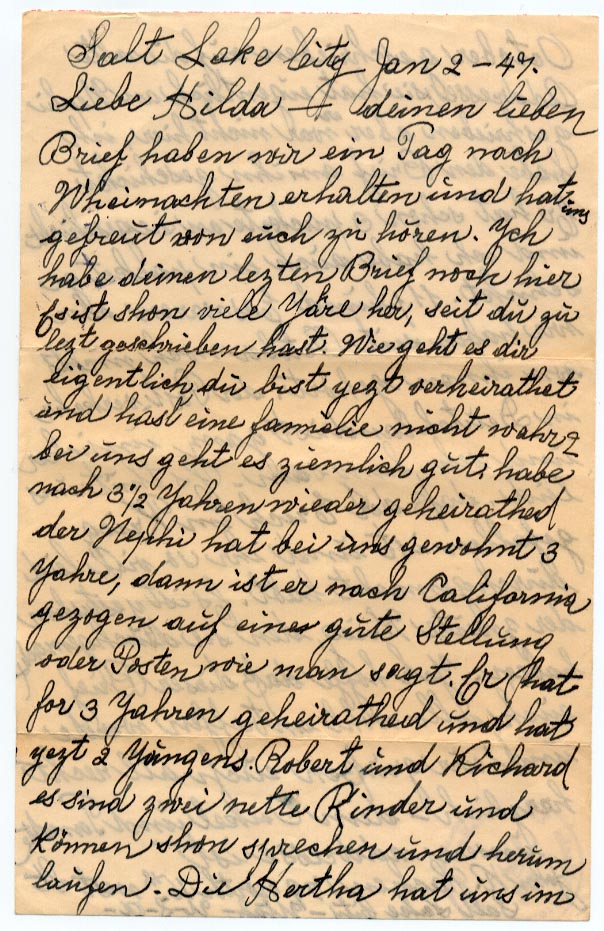 Salt Lake City Jan 2 - 47.
Liebe Hilda — deinen lieben
Brief haben wir ein Tag nach
Wheinachten erhalten und hat uns
gefreut von euch zu hören. Ych
habe deinen lezten Brief noch hier
Es ist shon viele Yäre her, seit du zu
lezt geschrieben hast. Wie geht es dir
eigentlich, du bist yezt verheirathet
und hast eine familie nicht wahr?
bei uns geht es ziemlich gut, habe
nach 3 1/2 Yahren wieder geheirathed
der Nephi hat bei uns gewohnt 3
Yahre, dann ist er nach California
gezogen auf eine gute Stellung
oder Posten wie man sagt. Er hat
for 3 Yahren geheirathed und hat
yezt 2 Yüngens. Robert und Richard
es sind zwei nette Kinder und
können shon sprechen und herum
laufen. Die Hertha hat uns im